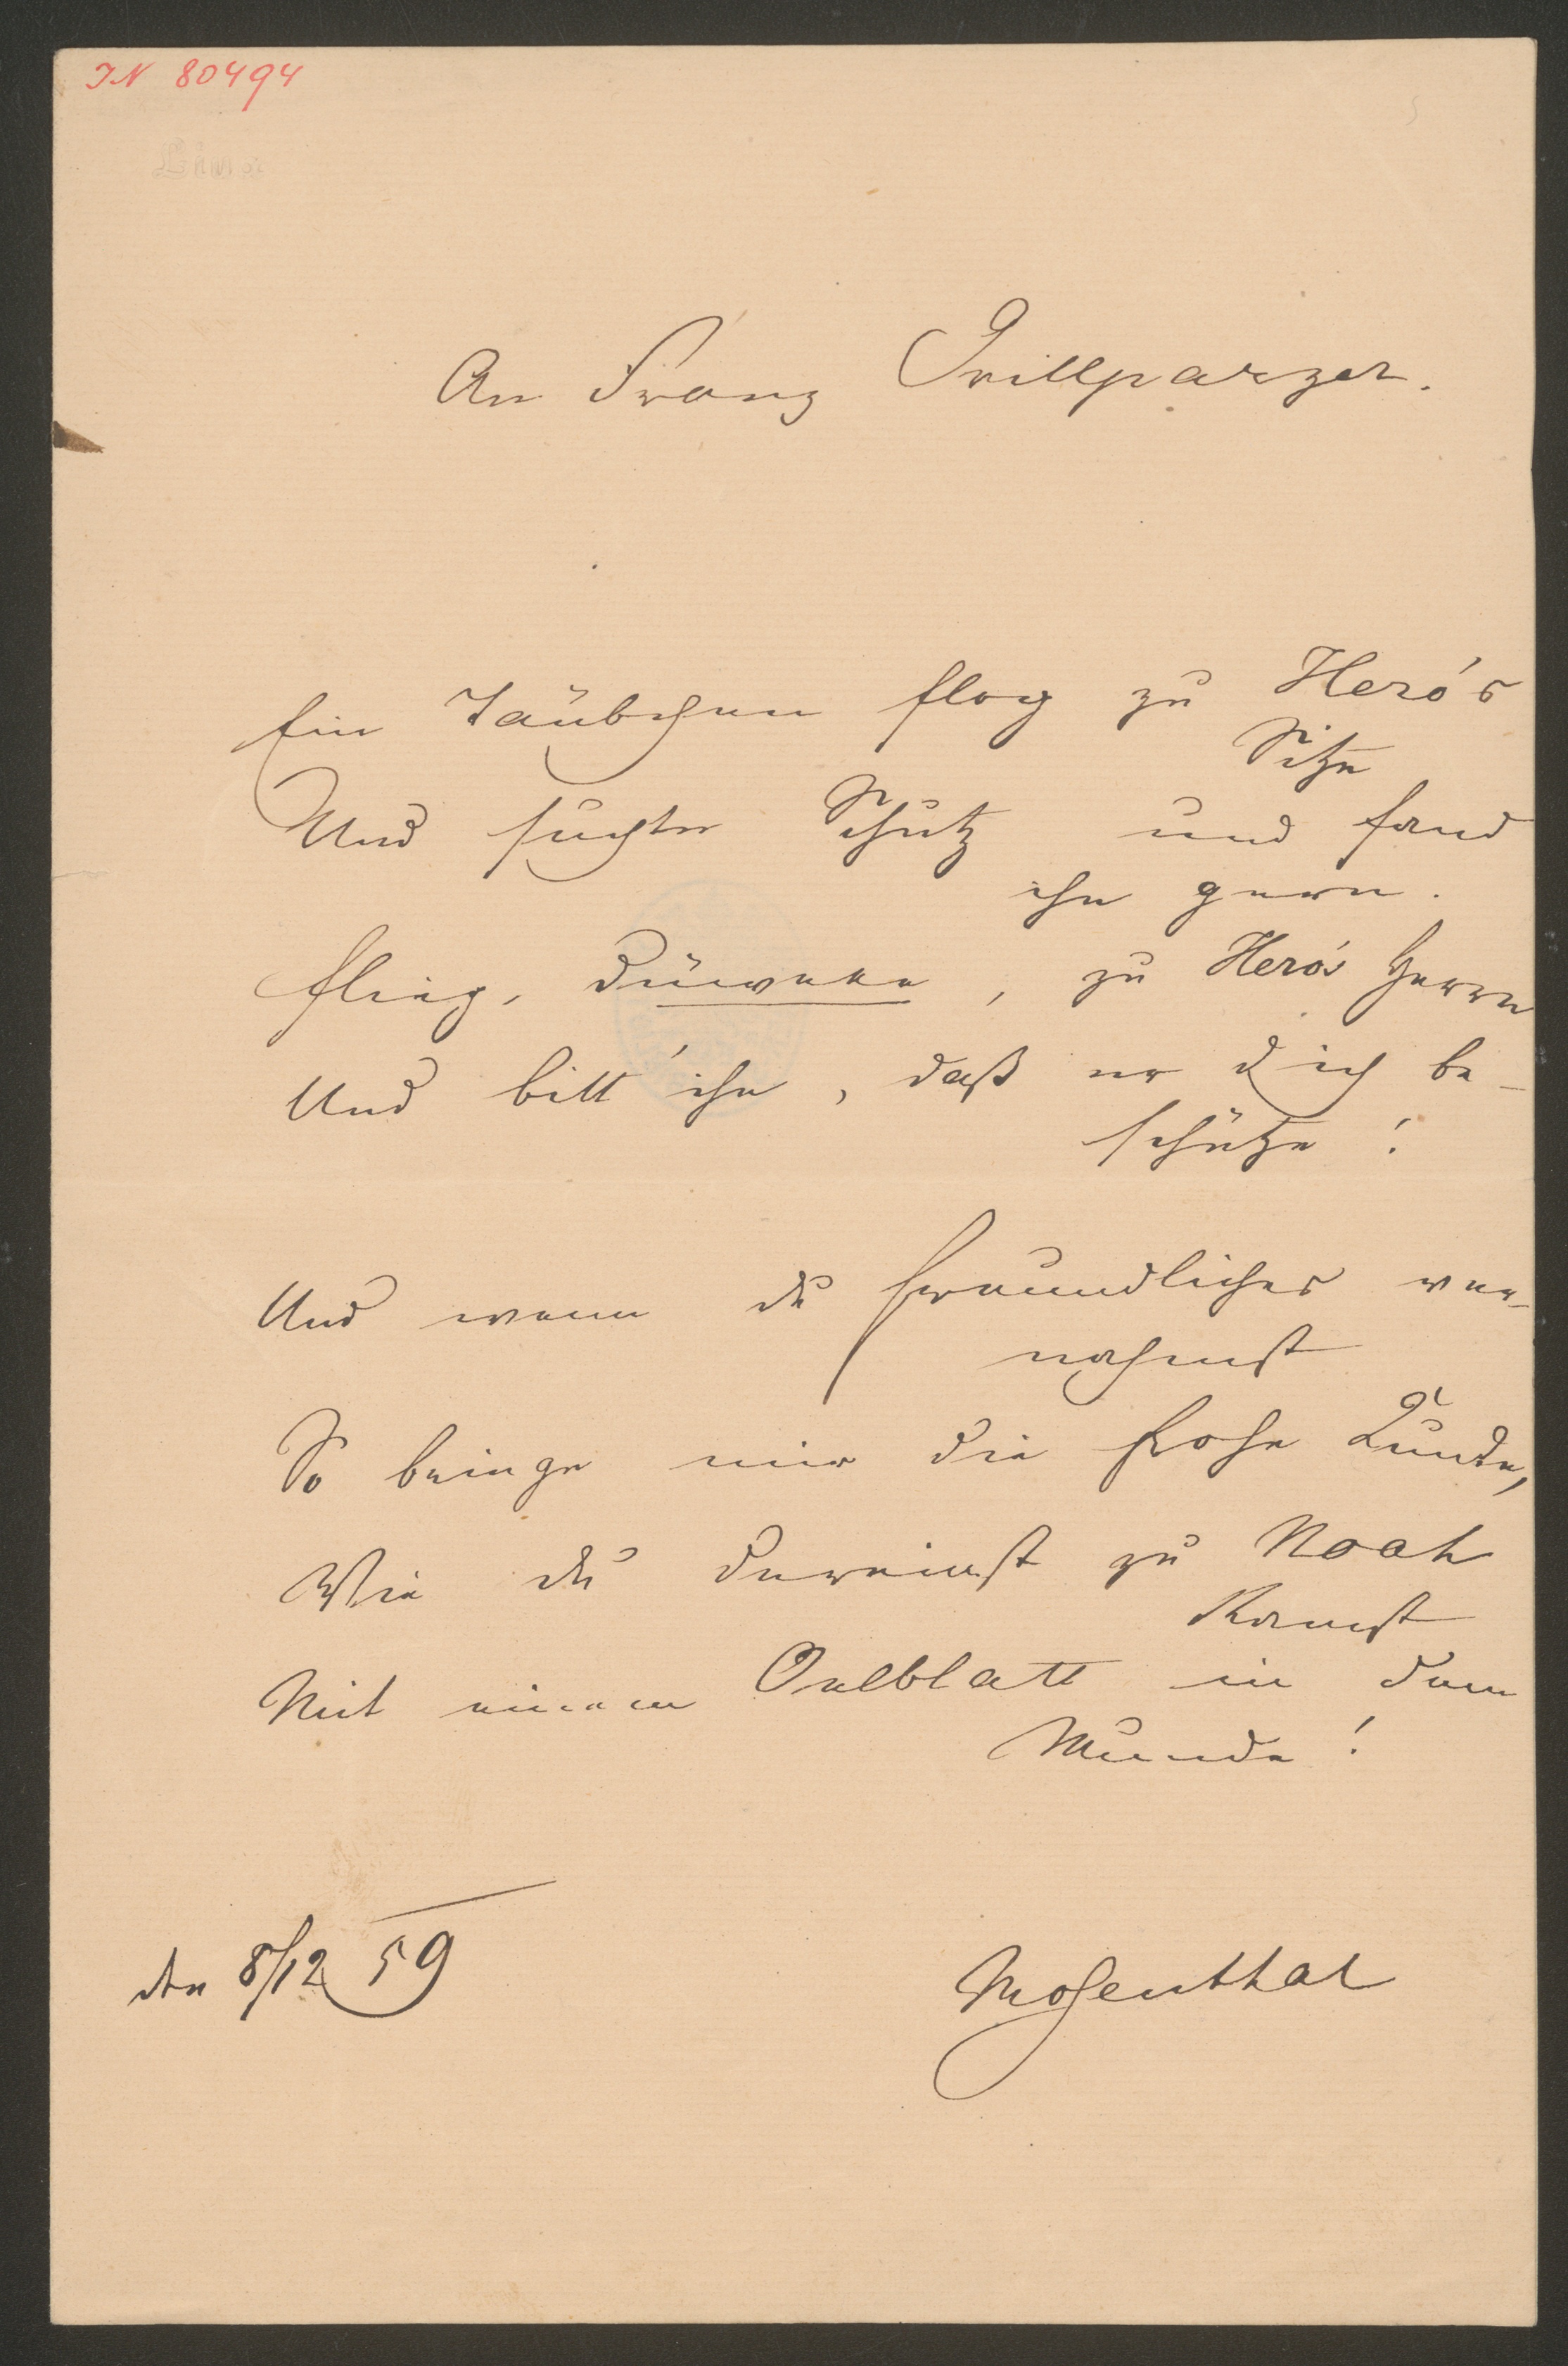 IN 80494
An Franz Grillparzer.
Ein Täubchen flog zu Hero's
Sitze
Und suchte Schutz und fand
ihn gern.
Flieg, Düweke, zu Hero's Herrn
Und bitt' ihn, daß er dich be-
schütze!
Und wenn du freundliches ver-
nahmst
So bringe mir die frohe Kunde,
Wie du dereinst zu Noah
kamst
Mit einem Oelblatt in dem
Munde!
den 8/12 59
Mosenthal